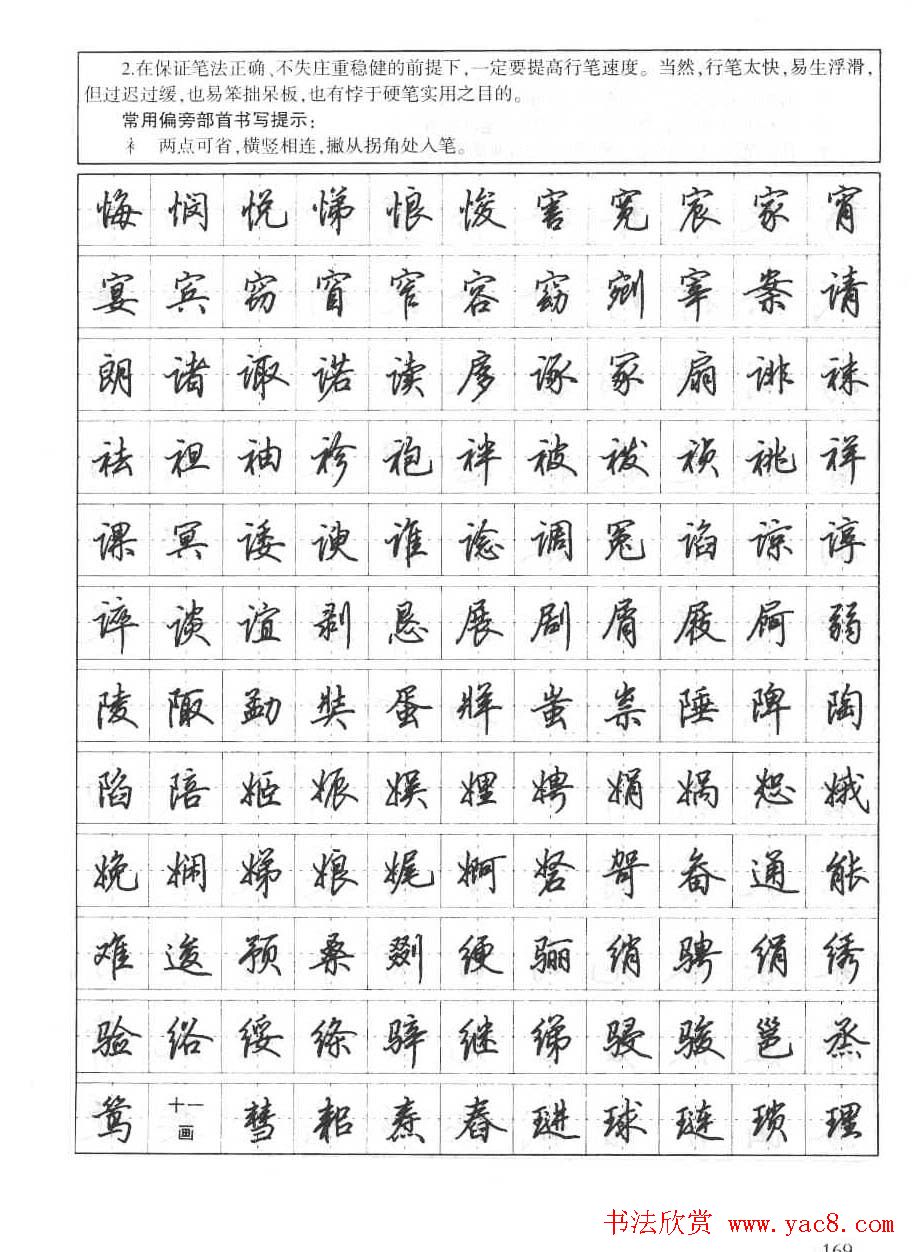 2.在保证笔法正确、不失庄重稳健的前提下,一定要提高行笔速度。当然,行笔太快,易生浮滑,
但过迟过缓,也易笨拙呆板,也有悖于硬笔实用之目的。
常用偏旁部首书写提示:
衤 两点可省,横竖相连,撇从拐角处入笔。
悔 悯 悦 悌 悢 悛 害 宽 宸 家 宵
宴 宾 窃 窅 窄 容 窈 剜 宰 案 请
朗 诸 诹 诺 读 扅 诼 冢 扇 诽 袜
袪 袒 袖 袗 袍 袢 被 袯 祯 祧 祥
课 冥 诿 谀 谁 谂 调 冤 谄 谅 谆
谇 谈 谊 剥 恳 展 剧 屑 屐 屙 弱
陵 陬 勐 奘 蛋 牂 蚩 祟 陲 陴 陶
陷 陪 姬 娠 娱 娌 娉 娟 娲 恕 娥
娩 娴 娣 娘 娓 婀 砮 哿 畚 通 能
难 逡 预 桑 剟 绠 骊 绡 骋 绢 绣
验 绤 绥 绦 骍 继 绨 骎 骏 邕 烝
鸶 十一画 彗 耜 焘 舂 琎 球 琏 琐 理
书法欣赏 www.yac8.com
169